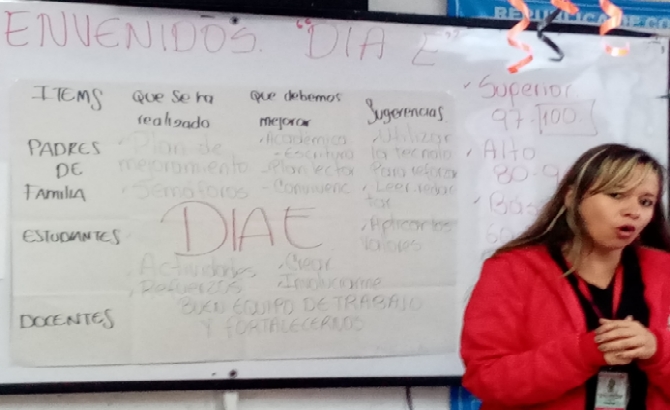 REPUBLICA DE CO
ENVENIDOS. "DIA E"
ITEMS
que se ha realizado
que debemos mejorar
Sugerencias
PADRES DE FAMILIA
Plan de mejoramiento
Semaforos
Academica
Escritura
Plan lector
Convivenc
Utilizar la tecnolo
Para reforzar
Leer, redac
tar
Aplicar los
valores
ESTUDIANTES
DIA E
Actividades
Refuerzos
Crear
Involucrarme
DOCENTES
BUEN EQUIPO DE TRABAJO
Y FORTALECERNOS
Superior
97-100
Alto
80-9
Bás
60